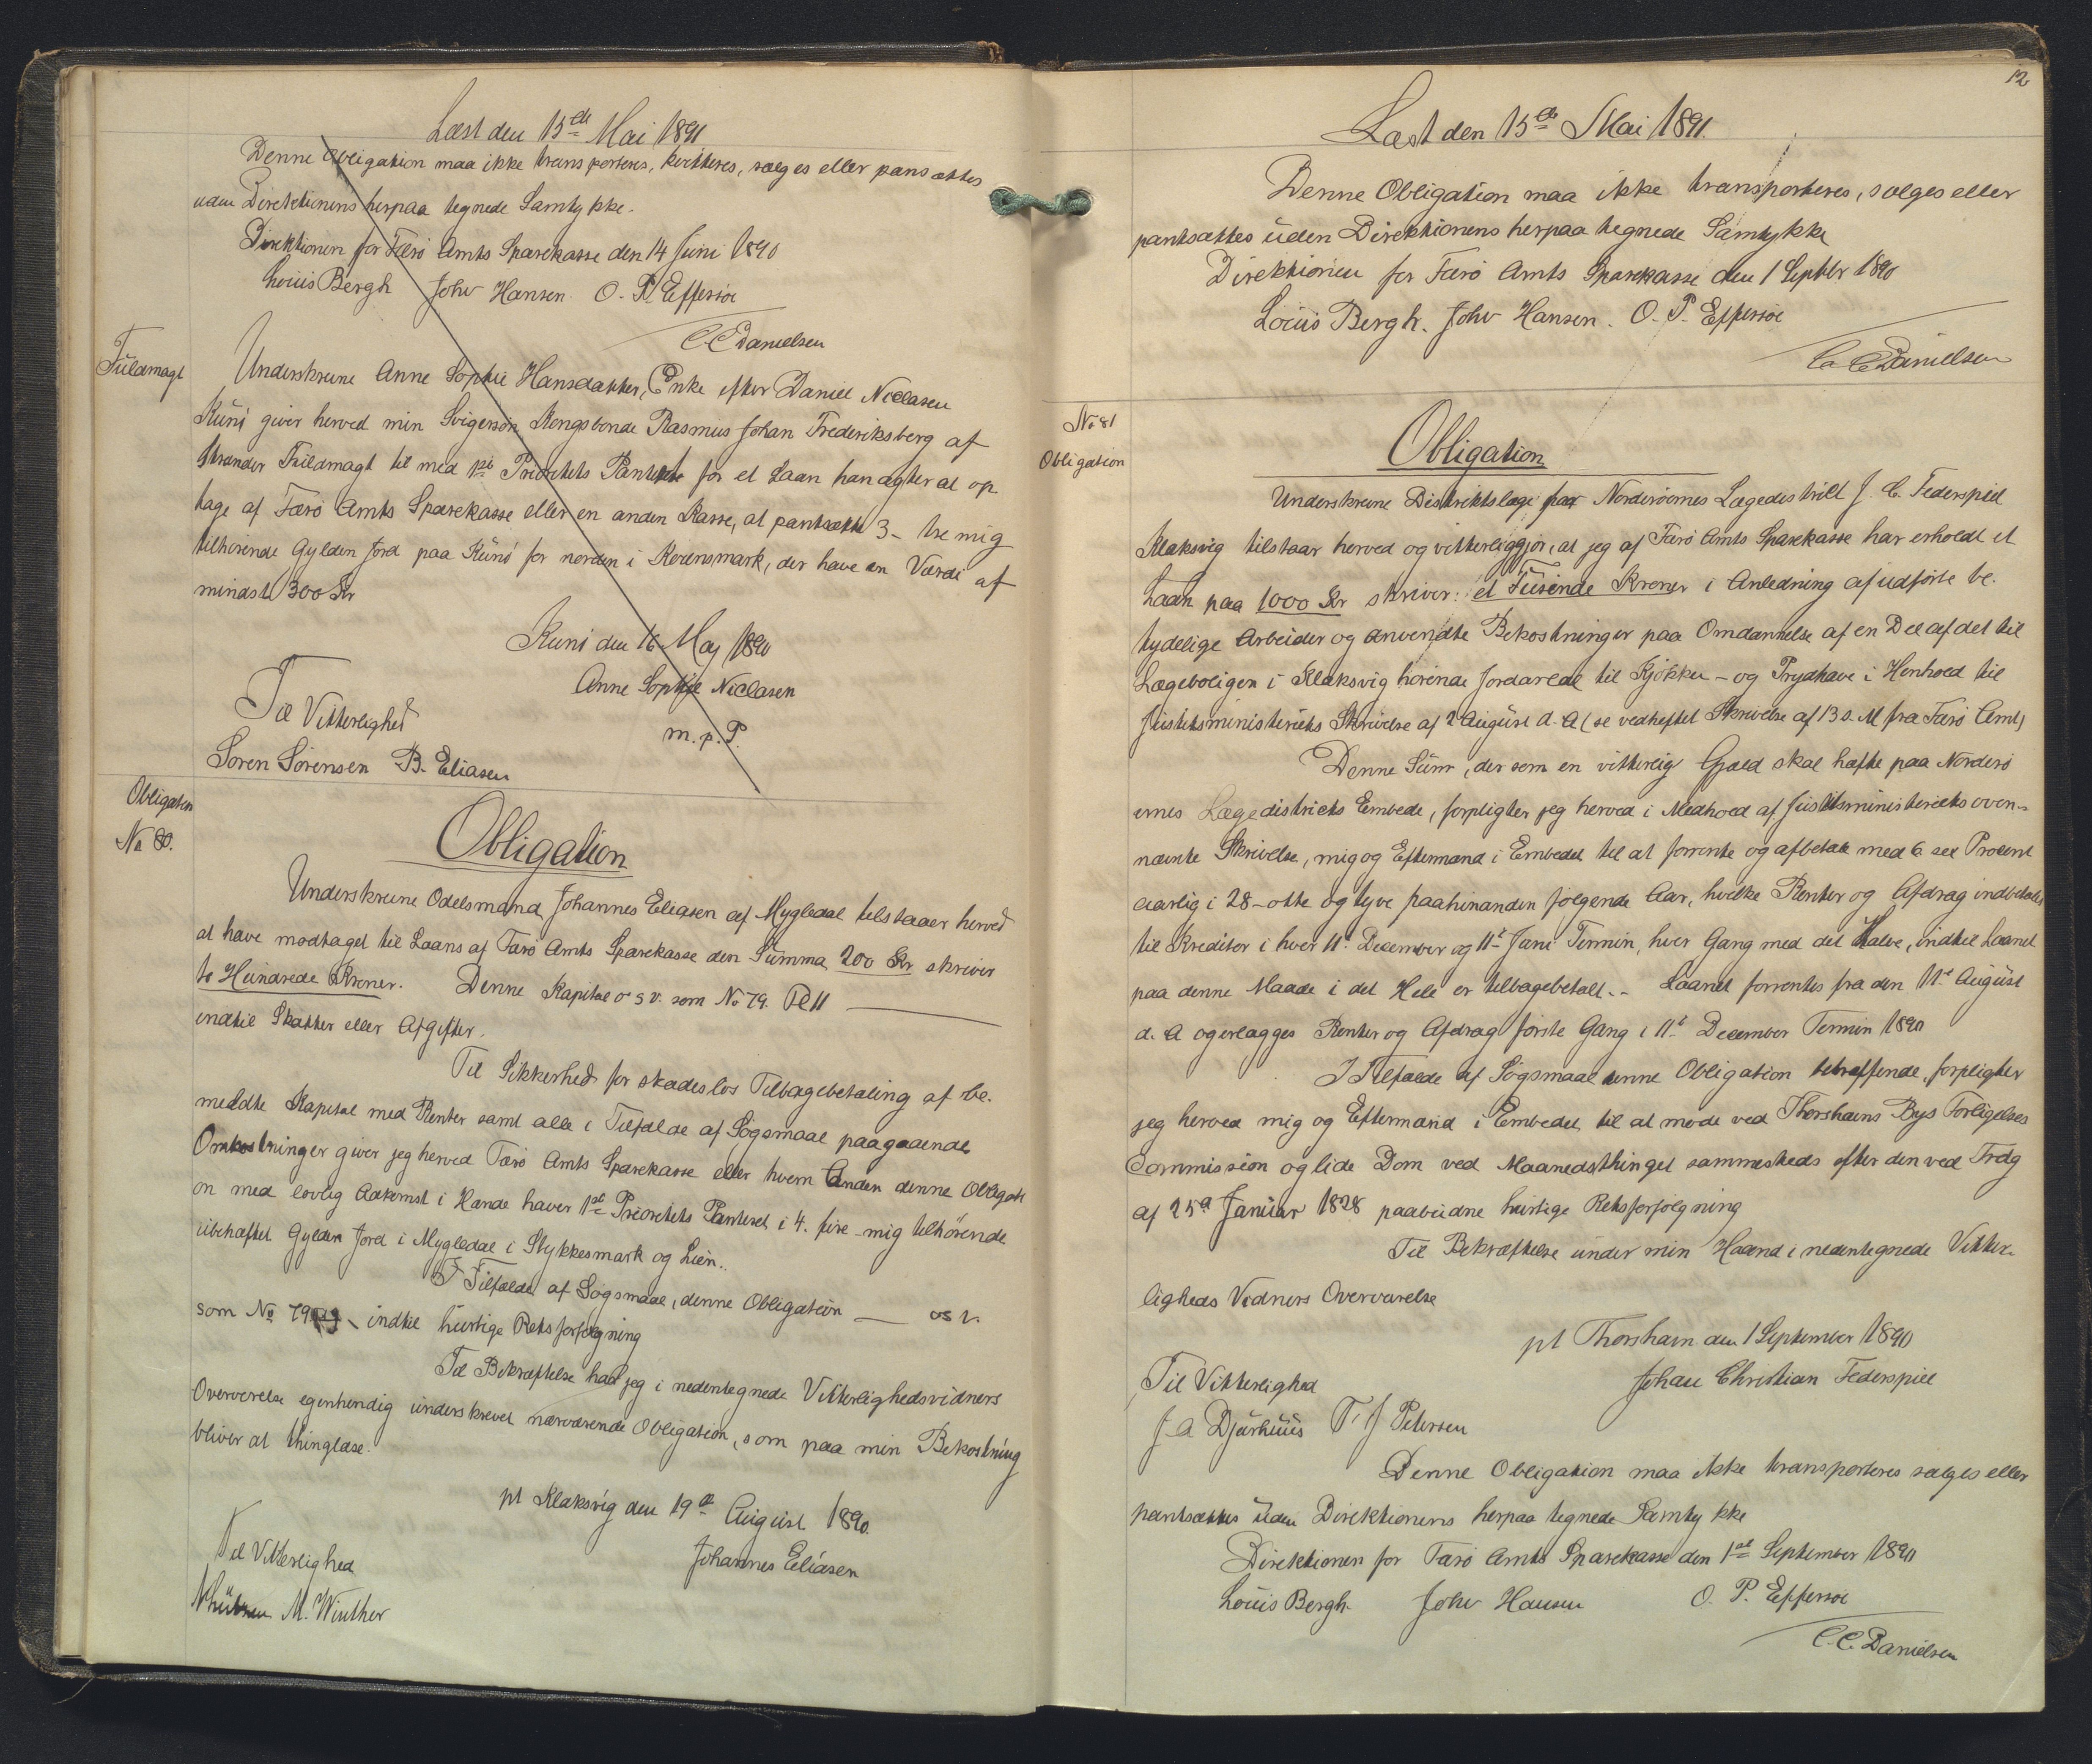 Læst den 15de Mai 1891
Denne Obligation maa ikke transporteres, kvitteres, sælges eller pansættes
uden Direktionens herpaa tegnede Samtykke.
Direktionen for Færö Amts Sparekasse den 14 Juni 1890
Louis Bergh Johv Hansen O. P. Effersöe
C. C. Danielsen
Fuldmagt
Underskrevne Anne Sophie Hansdatter, Enke efter Daniel Niclasen
Kunö giver herved min Svigersön Kongsbonde Rasmus Johan Frederiksberg af
Strander Fuldmagt til med 1ste Prioritets Panteret for et Laan han agter at op
tage af Færö Amts Sparekasse eller en anden Kasse, at pantsætte 3 - tre mig
tilhörende Gylden Jord paa Kunö for norden i Kerensmark, der have en Værdi af
mindst 300 Kr
Kunö den 16 May 1890
Anne Sophie Niclasen
m. p. P.
Til Vitterlighed
Sören Sörensen B. Eliasen
Obligation
No 80.
Obligation
Underskrevne Odelsmand Johannes Eliasen af Mygledal tilstaaer herved
at have modtaget til Laans af Færö Amts Sparekasse den Summa 200 Kr skriver
to Hundrede Kroner. Denne Kapital o s v. som No 79.
indtil Skatter eller Afgifter.
Til Sikkerhed for skadeslös Tilbagebetaling af be-
meldte Kapital med Renter samt alle i Tilfælde af Sögsmaal paagaaende
Omkostninger giver jeg herved Færö Amts Sparekasse eller hvem Anden denne Obligati
on med lovlig Adkomst i Hænde haver 1ste Prioritets Panteret i 4. fire - mig tilhörende
ubehæftet Gylden Jord i Mygledal i Stykkesmark og Lien..
I Tilfælde af Sögsmaal, denne Obligation — o s v.
som No 79 indtil hurtige Retsforfølgning
Til Bekræftelse har jeg i nedentegnede Vitterlighedsvidners
Overværelse egenhendig underskrevet nærværende Obligation, som paa min Bekostning
bliver at thinglæse.
pt Klaksvig den 19de August 1890.
Johannes Eliasen
Til Vitterlighed
M. Winther
12
Læst den 15de Mai 1891.
Denne Obligation maa ikke transporteres, sælges eller
pantsættes uden Direktionens herpaa tegnede Samtykke
Direktionen for Færö Amts Sparekasse den 1 Septbr 1890
Louis Bergh. Johv Hansen. O. P. Effersöe
C. C. Danielsen
No 81
Obligation
Obligation
Underskrevne Distriktslæge paa Norderöernes Lægedistrikt J. C. Federspiel
Klaksvig tilstaar herved og vitterliggjör, at jeg af Færö Amts Sparekasse har erholdt et
Laan paa 1000 Kr skriver: et Tusinde Kroner i Anledning af udförte be-
tydelige Arbeider og anvendte Bekostninger paa Omdannelse af en Del af det til
Lægeboligen i Klaksvig hörende Jordareal til Kjökken - og Prydhave i Henhold til
Justitsministeriets Skrivelse af 2 August d. A (se vedheftet Skrivelse af 13 s. M fra Færö Amt)
Denne Sum, der som en vitterlig Gjæld skal hæfte paa Norderö
ernes Lægedistricts Embede, forpligter jeg herved i Medhold af Justitsministeriets oven-
nævnte Skrivelse, mig og Eftermand i Embedet til at forrente og afbetale med 6 sex Procent
aarlig i 28 - otte og tyve paahinanden fölgende Aar, hvilke Renter og Afdrag indbetales
til Kreditor i hver 11t December og 11t Juni Termin, hver Gang med det Halve, indtil Laanet
paa denne Maade i det Hele er tilbagebetalt. - Laanet forrentes fra den 11t August
d. A og erlægges Renter og Afdrag förste Gang i 11t December Termin 1890
I Tilfælde af Sögsmaal denne Obligation betræffende, forpligter
jeg herved mig og Eftermand i Embedet til at möde ved Thorshavns Byes Forligelses
Commission og lide Dom ved Maanedsthinget sammesteds efter den ved Frdg
af 25d Januar 1828 paabudne hurtige Retsforfølgning
Til Bekræftelse under min Haand i nedentegnede Vitter-
ligheds Vidners Overværelse
pt Thorshavn den 1 September 1890
Johan Christian Federspiel
Til Vitterlighed
J. A Djurhuus F. J Petersen
Denne Obligation maa ikke transporteres sælges eller
pantsættes uden Direktionens herpaa tegnede Samtykke
Direktionen for Færö Amts Sparekasse den 1ste September 1890
Louis Bergh. Johv Hansen O. P. Effersöe
C. C. Danielsen